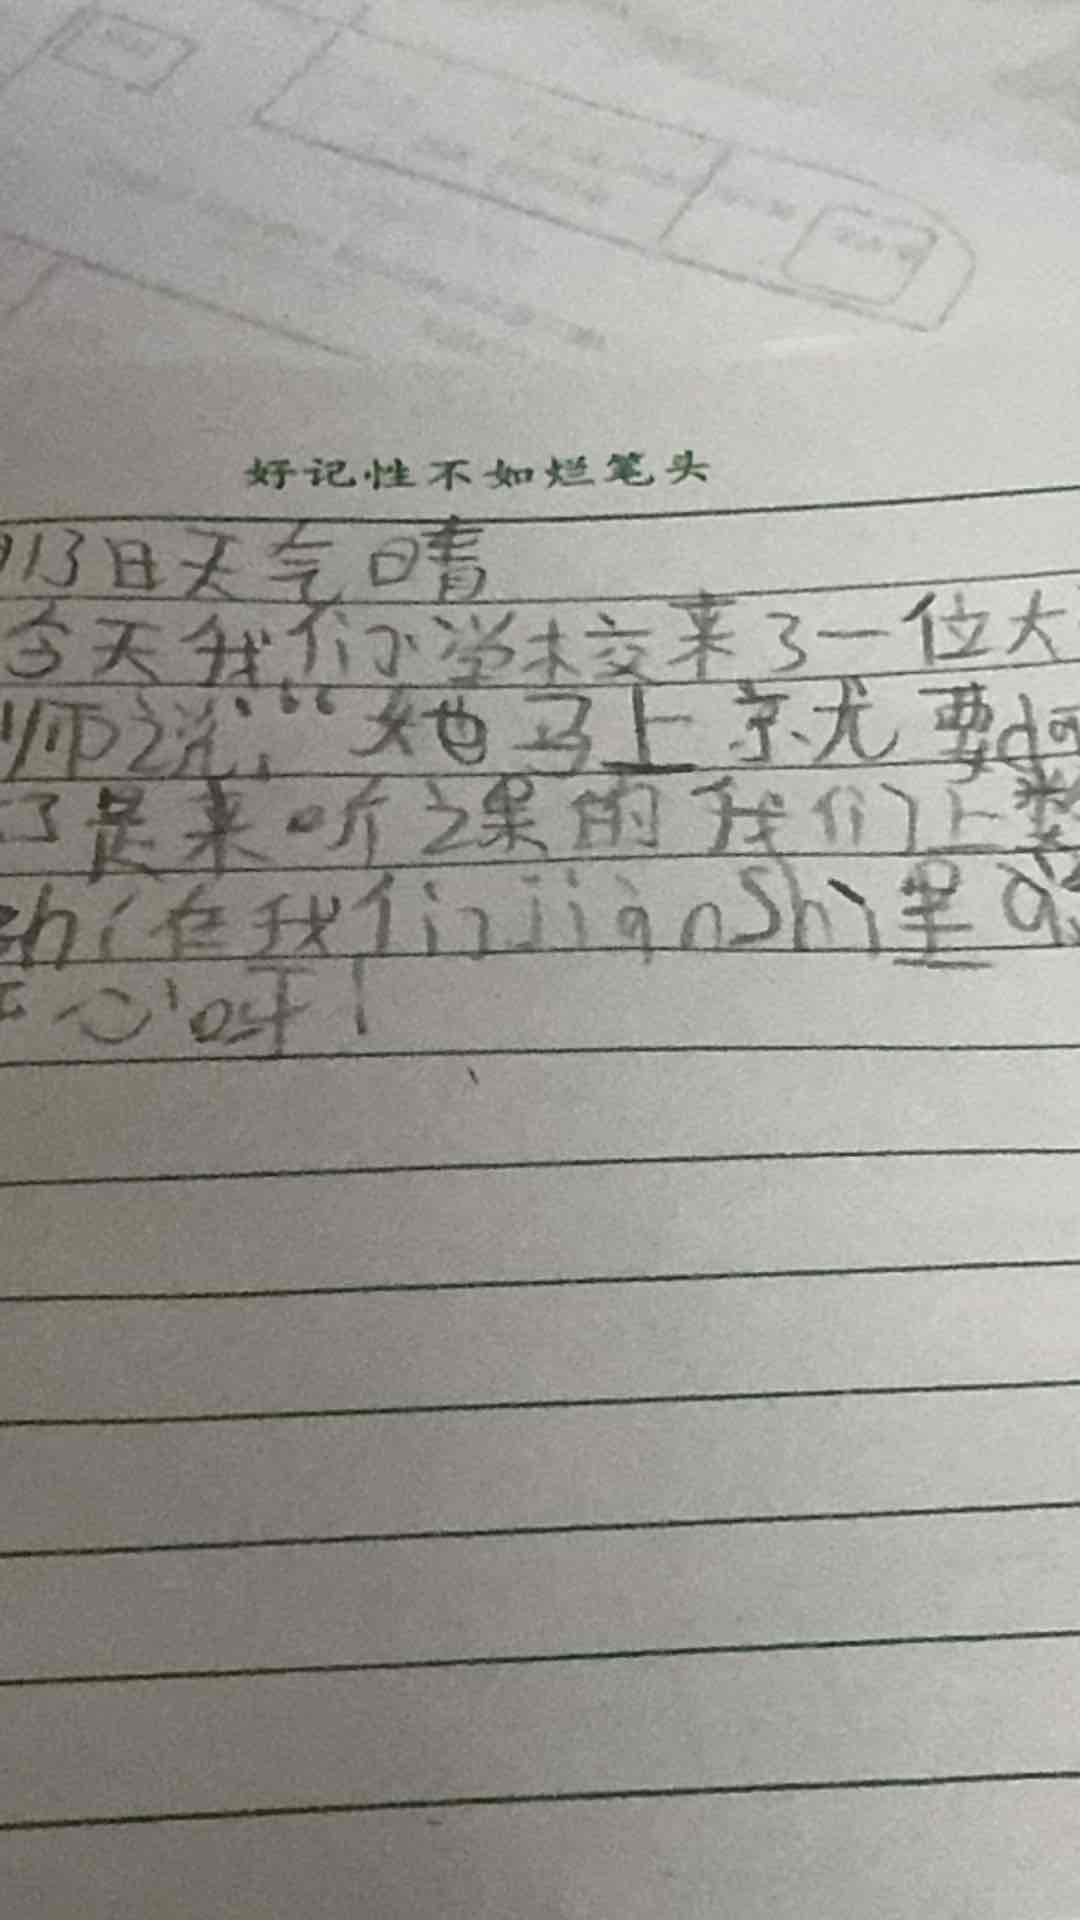 好记性不如烂笔头
月13日天气晴
今天我们学校来了一位大
师说:“她马上就要
了是来听课的我们上数
shi在我们jiàn Shì里
开心呀!